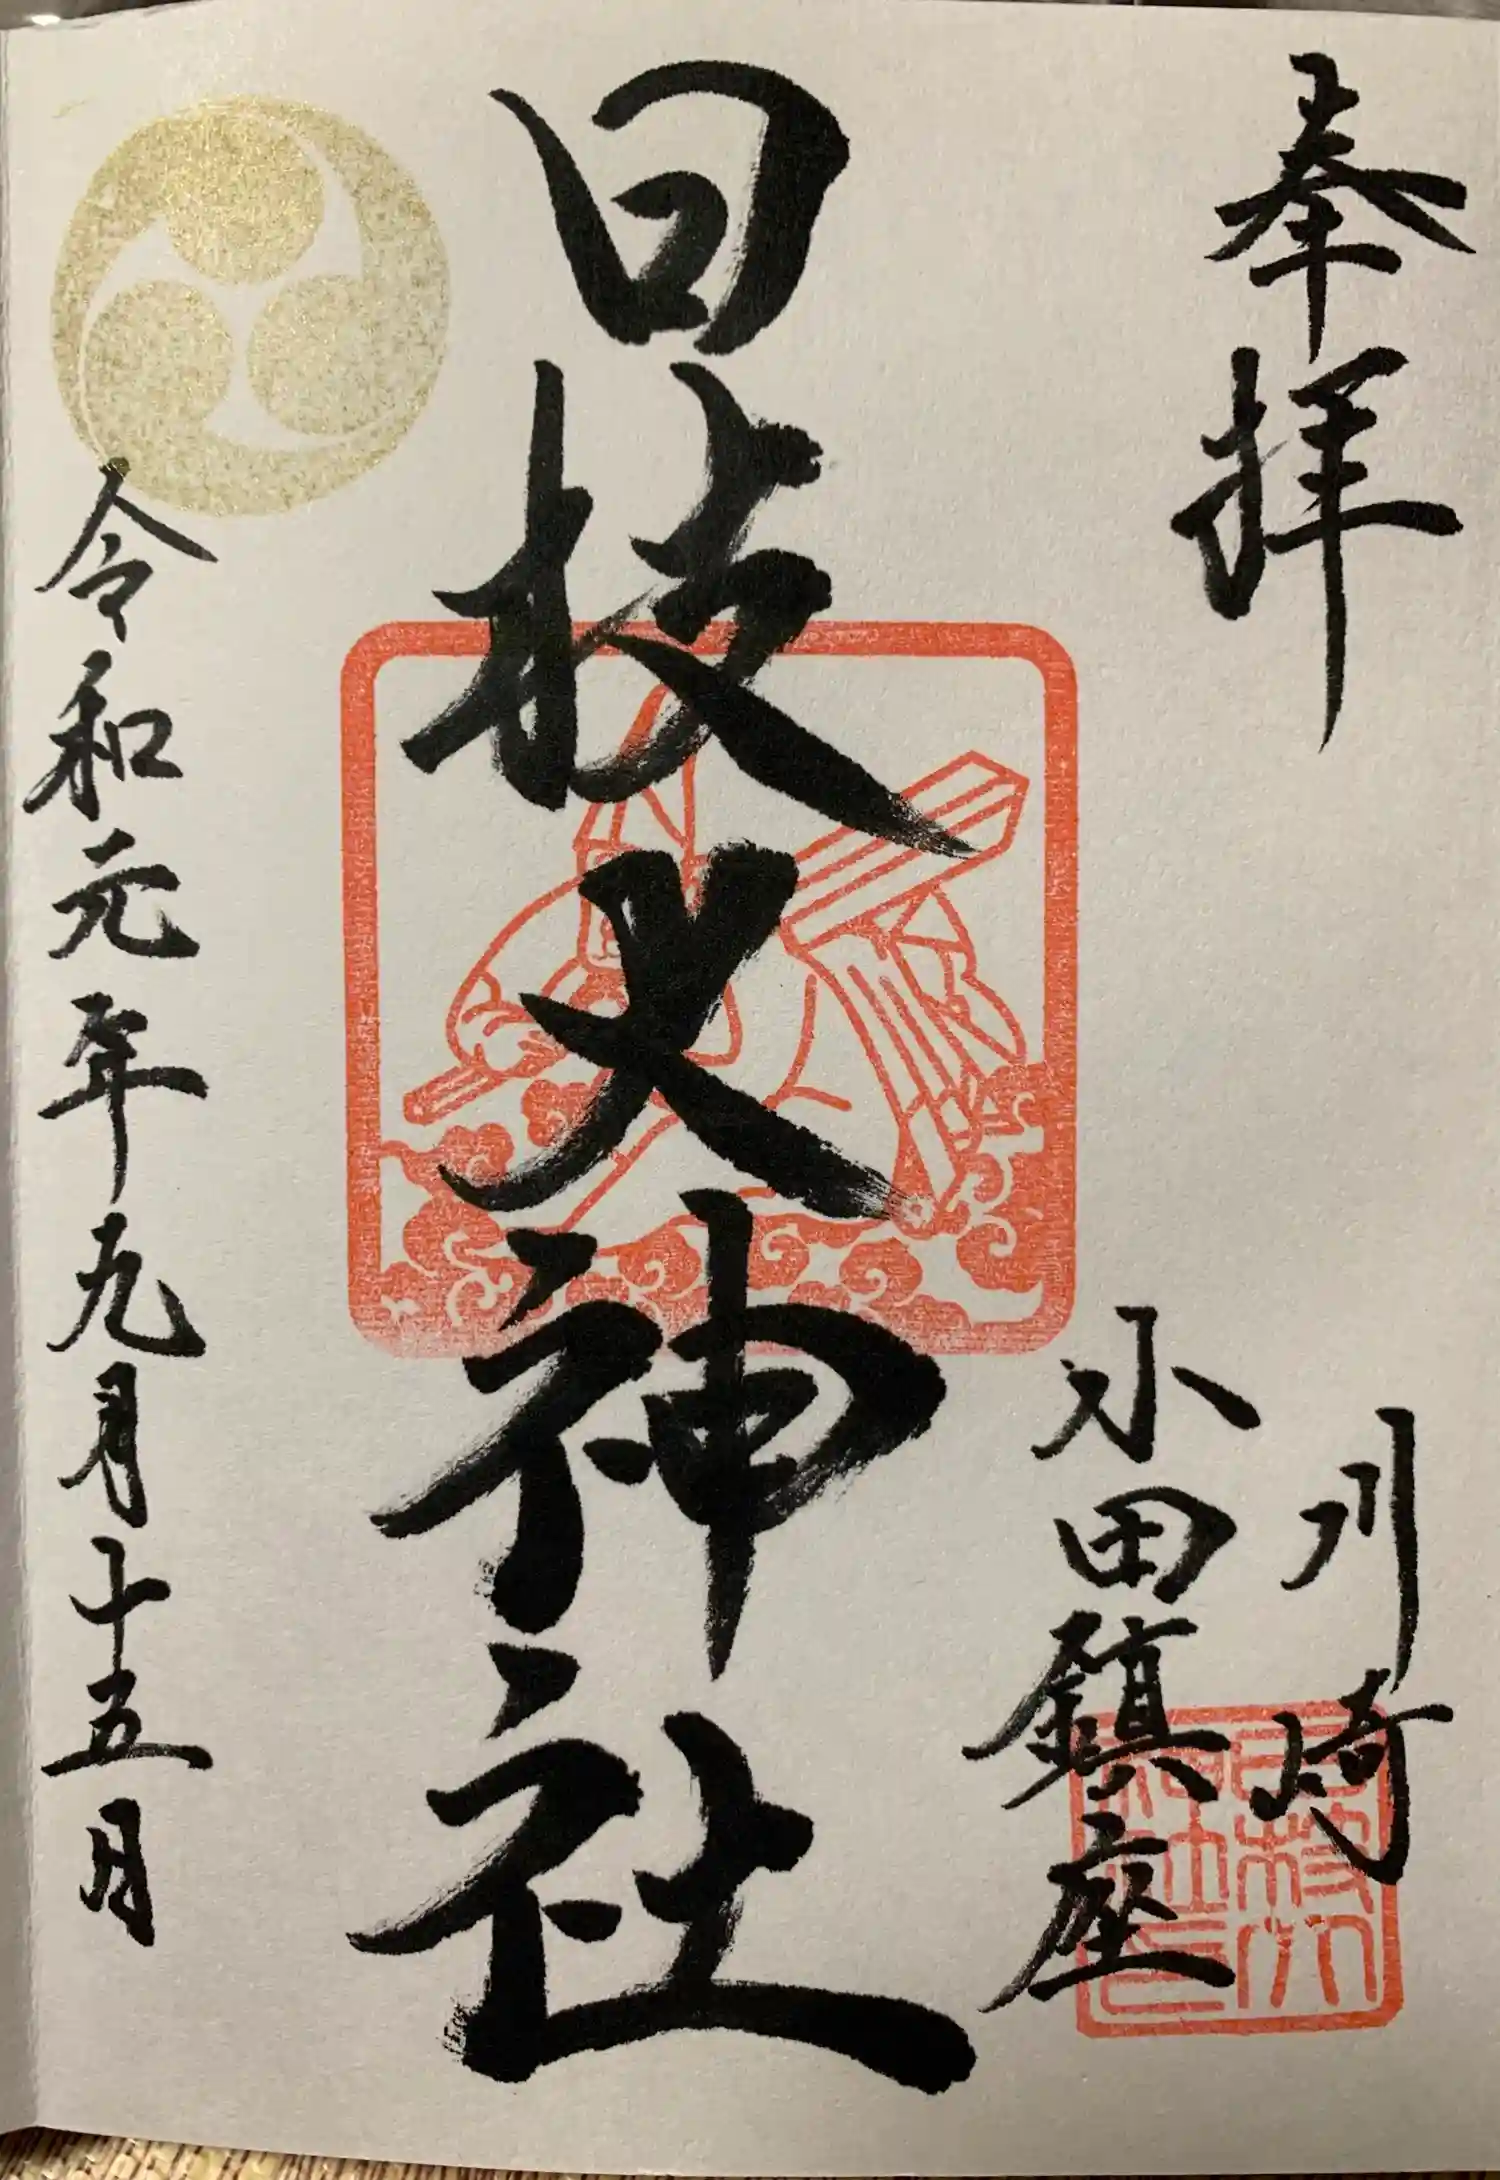 奉拝
川崎
小田鎮座
日枝大神社
令和元年九月十五日
日枝大
神社印